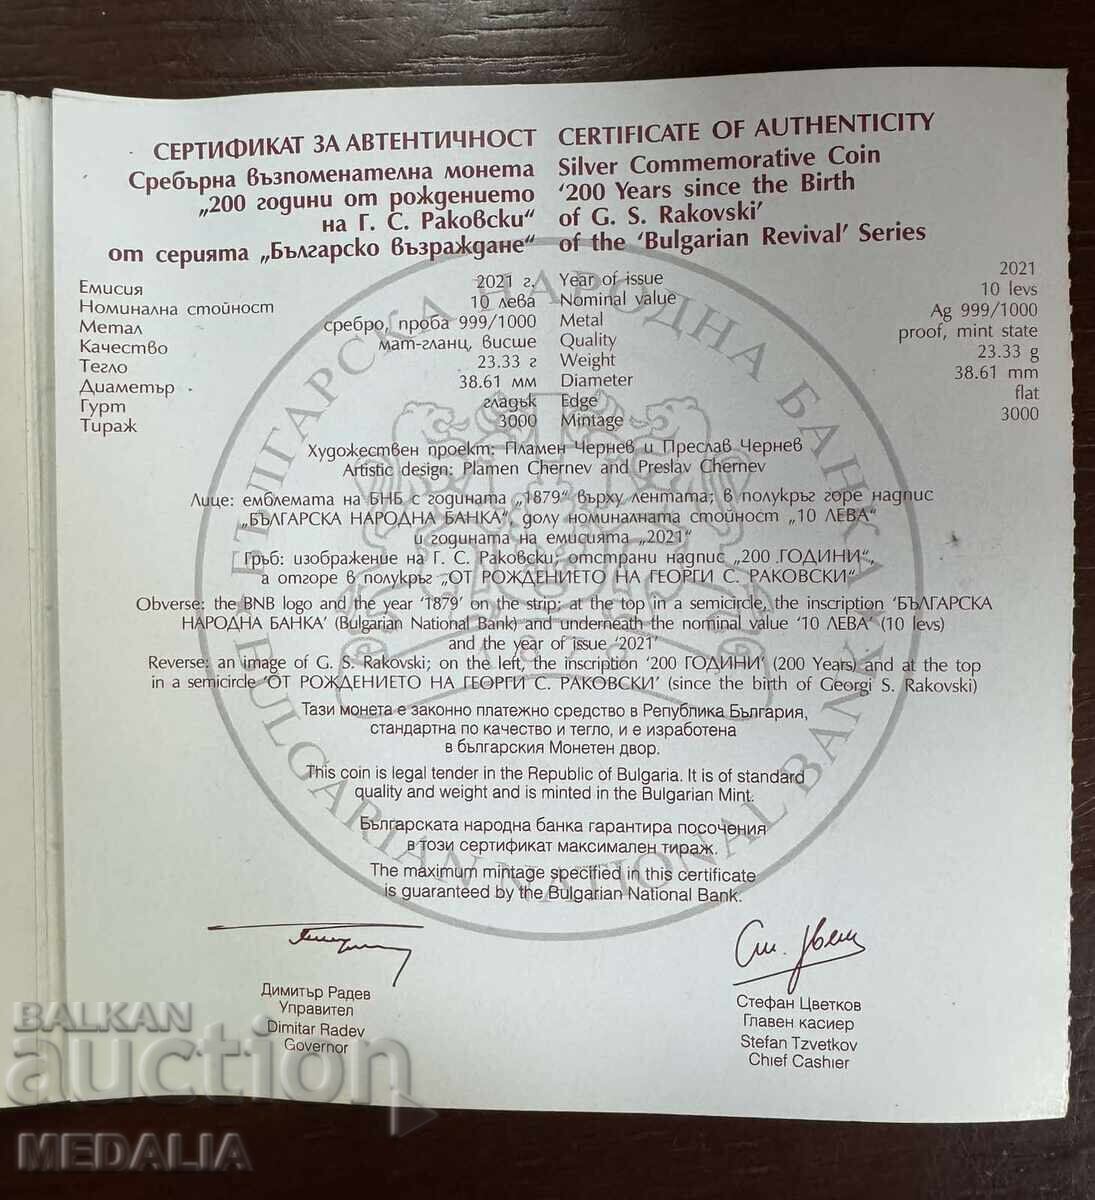 СЕРТИФИКАТ ЗА АВТЕНТИЧНОСТ
Сребърна възпоменателна монета
„200 години от рождението
на Г. С. Раковски“
от серията „Българско възраждане“
CERTIFICATE OF AUTHENTICITY
Silver Commemorative Coin
‘200 Years since the Birth
of G. S. Rakovski’
of the ‘Bulgarian Revival’ Series
Емисия 2021 г.
Номинална стойност 10 лева
Метал сребро, проба 999/1000
Качество мат-гланц, висше
Тегло 23.33 г
Диаметър 38.61 мм
Гурт гладък
Тираж 3000
Year of issue 2021
Nominal value 10 levs
Metal Ag 999/1000
Quality proof, mint state
Weight 23.33 g
Diameter 38.61 mm
Edge flat
Mintage 3000
Художествен проект: Пламен Чернев и Преслав Чернев
Artistic design: Plamen Chernev and Preslav Chernev
Лице: емблемата на БНБ с годината „1879“ върху лентата; в полукръг горе надпис
„БЪЛГАРСКА НАРОДНА БАНКА“ долу номиналната стойност „10 ЛЕВА“
и годината на емисията „2021“
Гръб: изображение на Г. С. Раковски; отстрани надпис „200 ГОДИНИ“,
а отгоре в полукръг „ОТ РОЖДЕНИЕТО НА ГЕОРГИ С. РАКОВСКИ“
Obverse: the BNB logo and the year ‘1879’ on the strip; at the top in a semicircle, the inscription ‘БЪЛГАРСКА
НАРОДНА БАНКА’ (Bulgarian National Bank) and underneath the nominal value ‘10 ЛЕВА’ (10 levs)
and the year of issue ‘2021’
Reverse: an image of G. S. Rakovski; on the left, the inscription ‘200 ГОДИНИ’ (200 Years) and at the top
in a semicircle ‘ОТ РОЖДЕНИЕТО НА ГЕОРГИ С. РАКОВСКИ’ (since the birth of Georgi S. Rakovski)
Тази монета е законно платежно средство в Република България,
стандартна по качество и тегло, и е изработена
в българския Монетен двор.
This coin is legal tender in the Republic of Bulgaria. It is of standard
quality and weight and is minted in the Bulgarian Mint.
Българската народна банка гарантира посочения
в този сертификат максимален тираж.
The maximum mintage specified in this certificate
is guaranteed by the Bulgarian National Bank.
БЪЛГАРСКА НАРОДНА БАНКА
BULGARIAN NATIONAL BANK
1879
Димитър Радев
Управител
Dimitar Radev
Governor
Стефан Цветков
Главен касиер
Stefan Tzvetkov
Chief Cashier
BALKAN
auction
MEDALIA